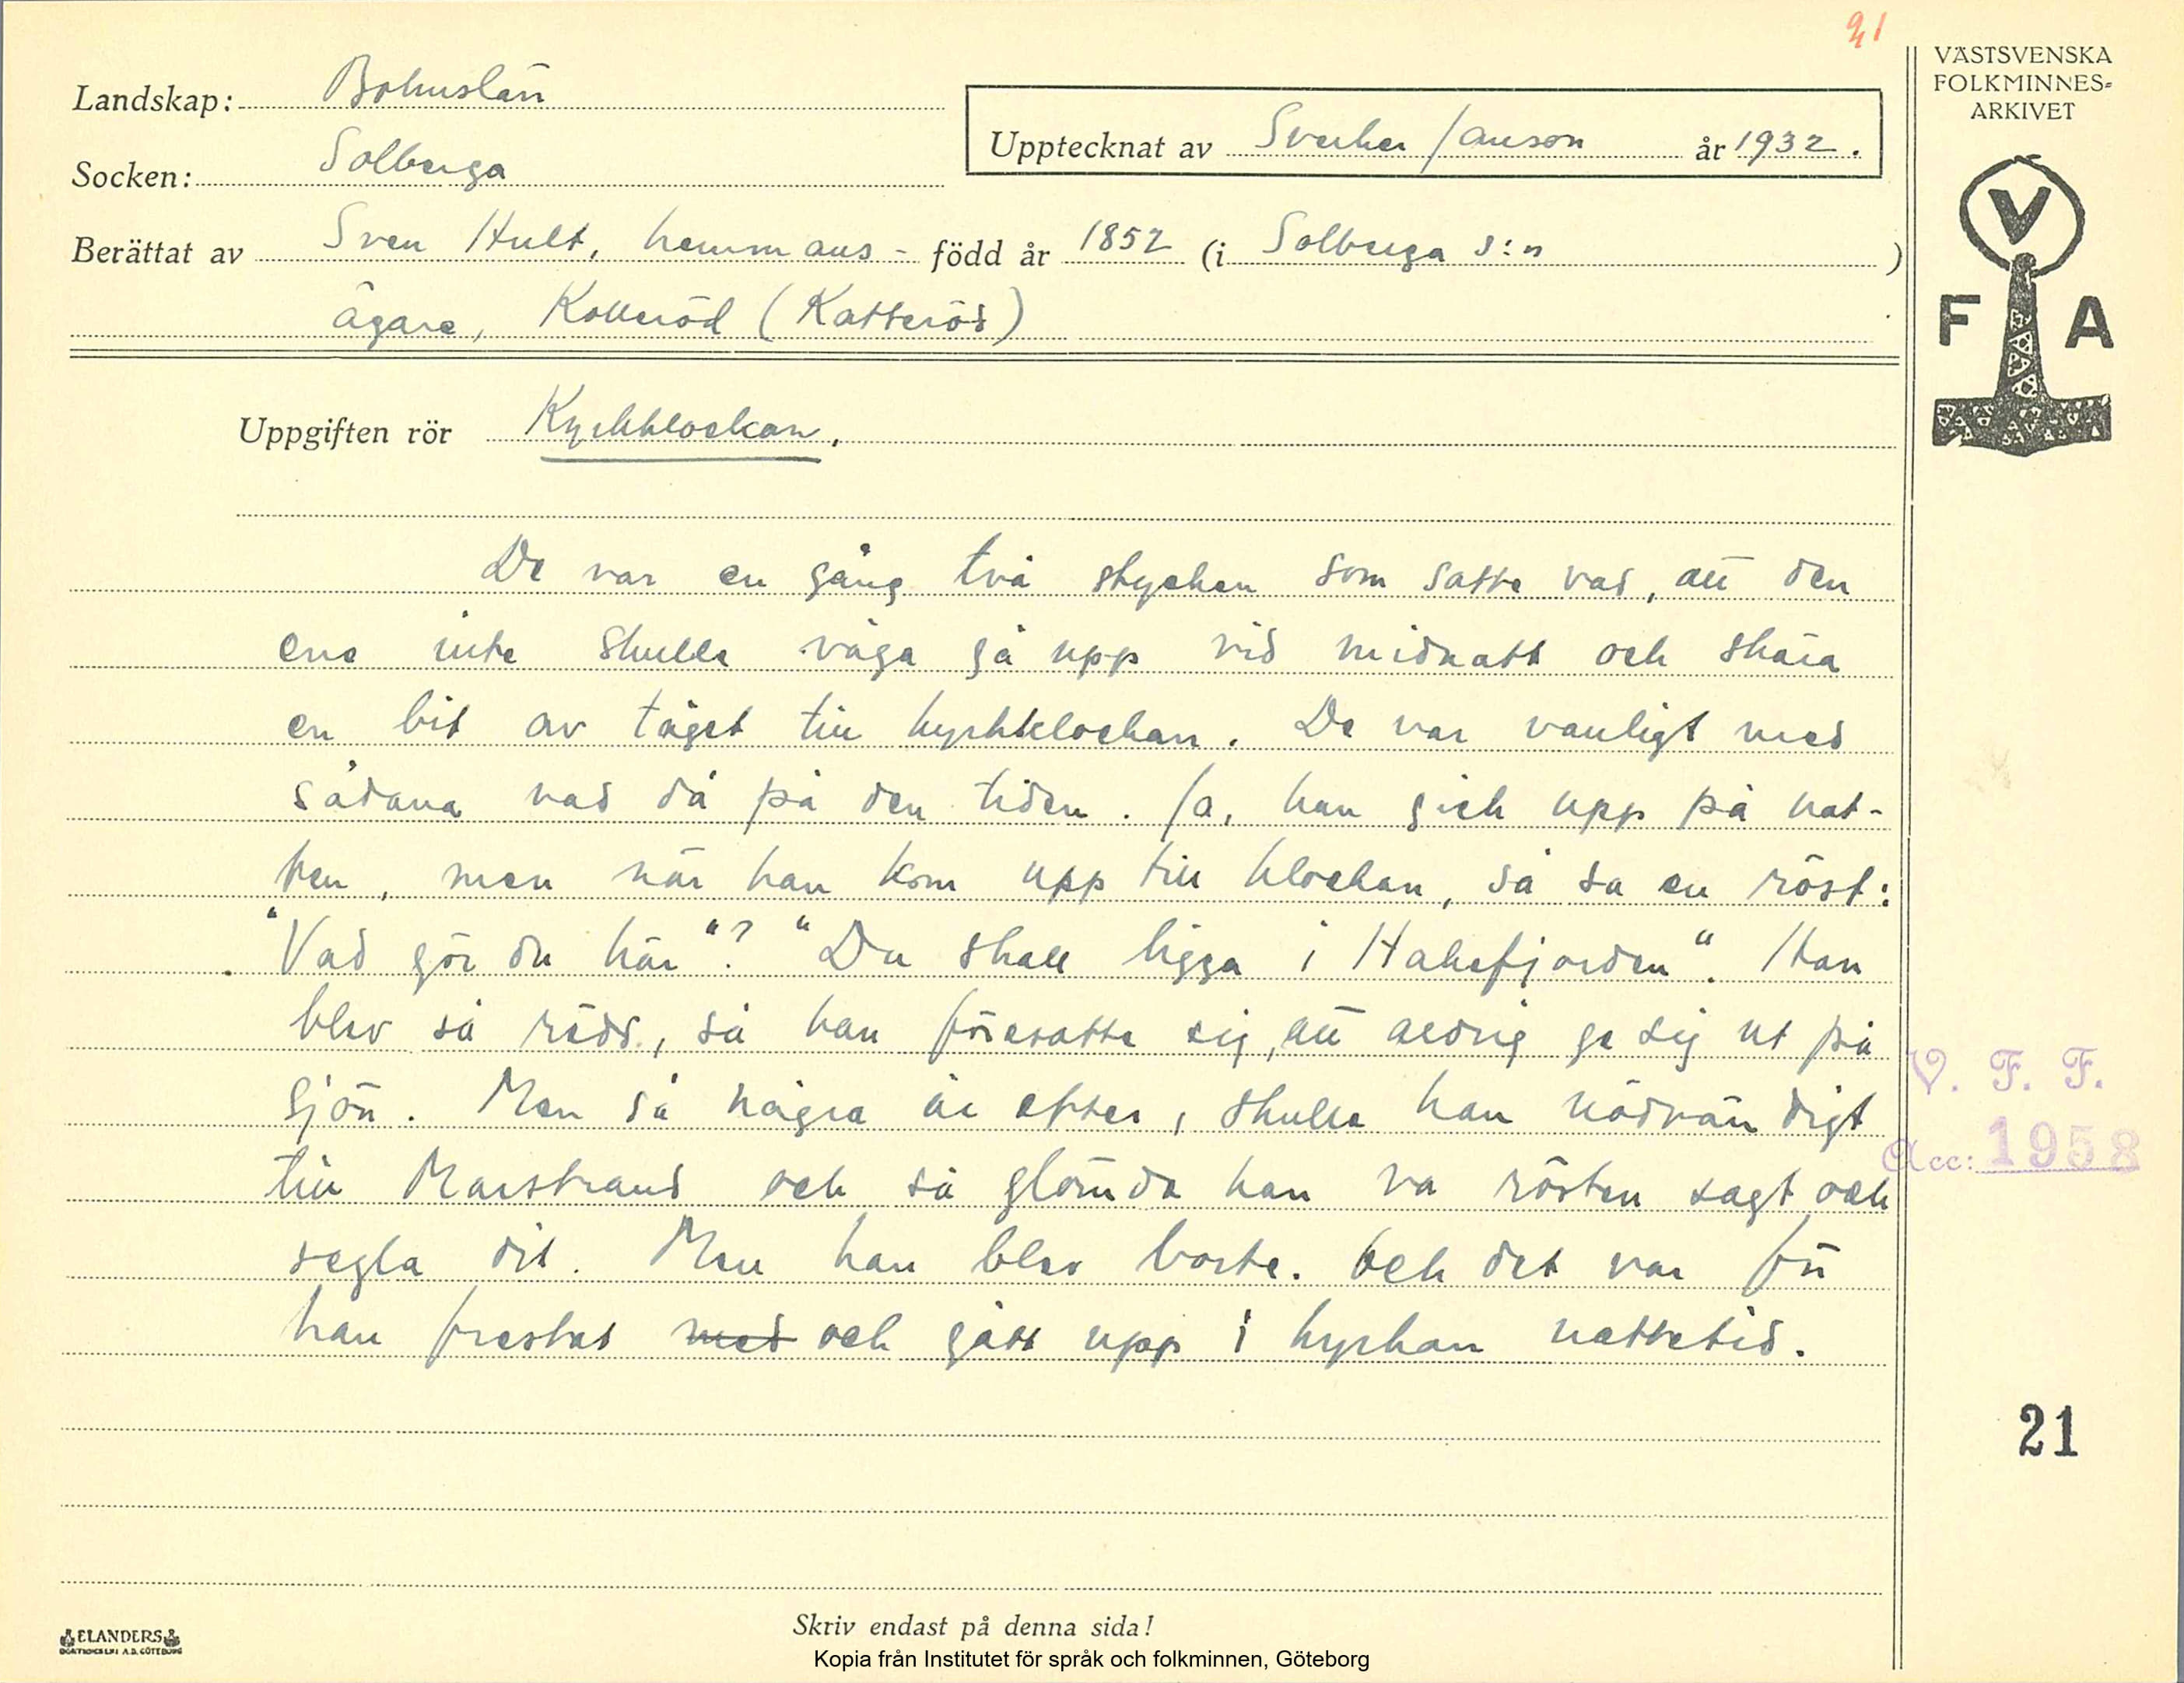 21
VÄSTSVENSKA
FOLKMINNES-
ARKIVET
Landskap: Bohuslän
Socken: Solberga
Upptecknat av Sverker Janson år 1932.
Berättat av Sven Hult, hemmans- född år 1852 (i Solberga s:n )
ägare, Kolleröd (Katteröd)
V
F A
Uppgiften rör Kyrkklockan.
De var en gång två stycken som satte vad, att den
ene inte skulle våga gå upp vid midnatt och skära
en bit av tåget till kyrkklockan. De var vanligt med
sådana vad då på den tiden. Ja, han gick upp på nat-
ten, men när han kom upp till klockan, så sa en röst:
"Vad gör du här"? "Du skall ligga i Hakefjorden". Han
blev så rädd, så han föresatte sig, att aldrig ge sig ut på
sjön. Men så några år efter, skulle han nödvändigt
till Marstrand och så glömda han va rösten sagt och
segla dit. Men han blev borte. Och det var för
han frestat med och gått upp i kyrkan nattetid.
V. F. F.
Acc: 1958
21
Skriv endast på denna sida!
ELANDERS
Kopia från Institutet för språk och folkminnen, Göteborg